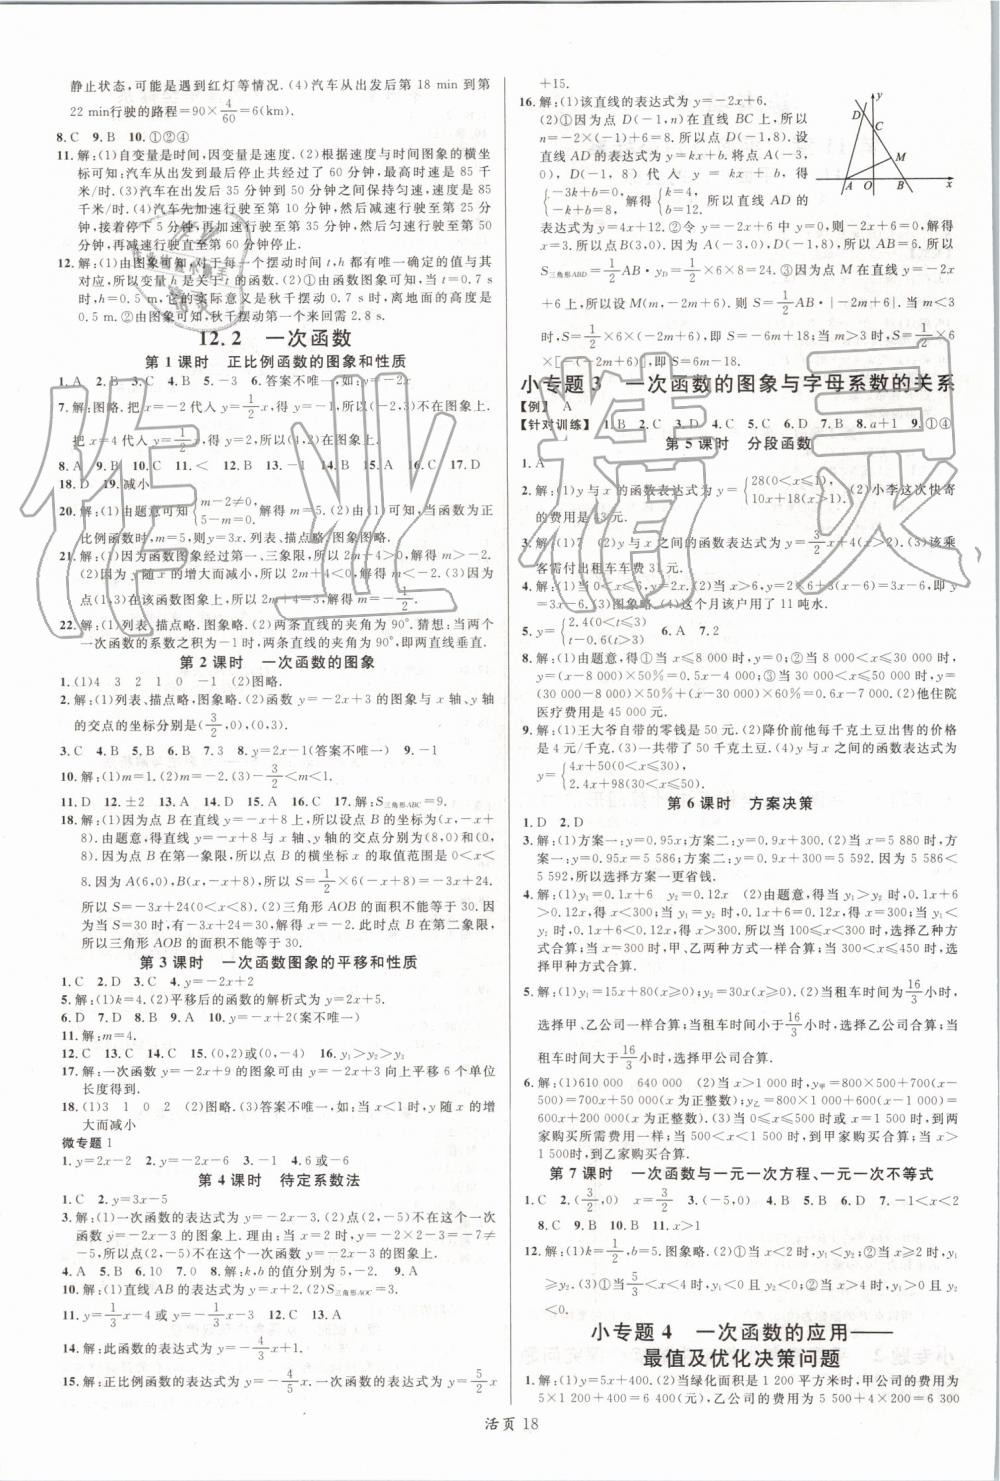 静止状态,可能是遇到红灯等情况.(4)汽车从出发后第 18 min 到第
22 min行驶的路程=90×4/60=6(km).
8.C 9.B 10.①②④
11.解:(1)自变量是时间,因变量是速度.(2)根据速度与时间图象的横坐
标可知:汽车从出发到最后停止共经过了 60 分钟,最高时速是 85 千
米/时.(3)汽车在出发后 35 分钟到 50 分钟之间保持匀速,速度是 85
千米/时.(4)汽车先加速行驶至第 10 分钟,然后减速行驶至第 25 分
钟,接着停下 5 分钟,再加速行驶至第 35 分钟,然后匀速行驶至第 50 分
钟,再减速行驶直至第 60 分钟停止.
12.解:(1)由图象可知,对于每一个摆动时间 t,h 都有唯一确定的值与其
对应,所以变量 h 是关于 t 的函数.(2)①由函数图象可知,当 t=0.7 s
时,h=0.5 m,它的实际意义是秋千摆动 0.7 s时,离地面的高度是
0.5 m.②由图象可知,秋千摆动第一个来回需 2.8 s.
12.2 一次函数
第 1 课时 正比例函数的图象和性质
1.A 2.C 3.B 4.B 5.-3 6.答案不唯一,如:y=-2x
8.A 9.B 10.C 11.< 12.B 13.-1 14.A 15.C 16.D 17.B
18.D 19.减小
比例函数时,m=5,则y=3x.列表、描点略.图象略.
21.解:(1)因为函数图象经过第一、三象限,所以m+2>0,解得m>-2.
22.解:(1)列表、描点略.图象略.(2)两条直线的夹角为 90°.猜想:当两个
一次函数的系数之积为-1时,两条直线的夹角为 90°,即两直线垂直.
第 2 课时 一次函数的图象
1.(1)4 3 2 1 0 -1 (2)图略.
2.解:(1)列表、描点略,图象略.(2)函数 y=-2x+3 的图象与 x 轴、y 轴
的交点的坐标分别是(3/2,0),(0,3).
3.C 4.B 5.B 6.D 7.3 8.y=2x-1(答案不唯一) 9.-1
10.解:(1)m=1.(2)m=-2.(3)-2<m<1.
11.D 12.±2 13.A 14.C 15.A 16.C 17.解:S三角形ABC=9.
18.解:(1)因为点 B 在直线 y=-x+8 上,所以设点 B 的坐标为(x,-x+
8).由题意,得直线 y=-x+8 与x、y轴的交点分别为(8,0)和(0,
8).因为点 B 在第一象限,所以点 B 的横坐标 x 的取值范围是 0<x<
8.因为点A(6,0),B(x,-x+8),所以S=1/2×6(-x+8)=-3x+24.
所以 S=-3x+24(0<x<8).(2)三角形 AOB 的面积不能等于 30.因
为当 S=30 时,有-3x+24=30,解得 x=-2.此时点 B 在第二象限,
所以三角形 AOB 的面积不能等于 30.
第 3 课时 一次函数图象的平移和性质
1.C 2.D 3.C 4.y=-x+2
5.解:(1)k=4.(2)平移后的函数的解析式为 y=4x+5.
6.D 7.D 8.B 9.A 10.y=-x+2(答案不唯一)
11.解:m=4.
12.C 13.C 14.C 15.(0,2)或(0,-4) 16.y₁>y₂>y₃
17.解:一次函数 y=-2x+9 的图象可由 y=-2x+3 向上平移 6 个单位
长度得到.
18.(1)3 1 0 2 (2)图略.(3)答案不唯一,如:当 x<1 时,y 随 x 的增
大而减小
微专题 1
1.y=2x-2 2.y=-2x-6 3.-1 4.6 或-6
第 4 课时 待定系数法
1.C 2.y=3x+5
3.解:(1)一次函数的表达式为 y=-2x-3.(2)点(2,-5)不在这个一次
函数 y=-2x-3 的图象上.理由:当 x=2 时,y=-2×2-3=-7≠
-5,所以点(2,-5)不在这个一次函数 y=-2x-3 的图象上.
4.A 5.B 6.10 7.0 8.解:k,b 的值分别为5、-2. 9.A
10.解:(1)直线 AB 的表达式为 y=2x-2.(2)S三角形AOC=3.
11.y=1/3x-4 或 y=-1/3x-3 12.C 13.A
14.解:此函数的表达式为 y=-4/3x+4.
15.解:正比例函数表达式为 y=-4/5x.一次函数的表达式为 y=4/5x
+15.
16.解:(1)该直线的表达式为 y=-2x+6.
(2)①因为点 D(-1,n)在直线 BC 上,所以
n=-2×(-1)+6=8.所以点 D(-1,8).
设直线 AD 的表达式为 y=kx+b.将点 A(-3,
0),D(-1,8)代入 y=kx+b,得
{-3k+b=0, -k+b=8. 解得{k=4, b=12. 所以直线 AD 的
表达式为 y=4x+12.②令 y=-2x+6 中的 y=0,则-2x+6=0,解得
x=3.所以点B(3,0).因为点 A(-3,0),所以AB=6.所以
S三角形ABD=1/2×6×8=24.③因为点 M 在直线 y=-2x
+6上,所以设 M(m,-2m+6).则 S=1/2AB·|-2m+6|.当 m<3
时,S=1/2×6×(-2m+6),即 S=-6m+18;当 m>3 时,S=1/2×6
×[-(-2m+6)],即 S=6m-18.
小专题 3 一次函数的图象与字母系数的关系
【例】 A
【针对训练】 1.B 2.C 3.D 4.C 5.C 6.D 7.B 8.a+1 9.①④
第 5 课时 分段函数
1.A
2.解:(1)y 与 x 的函数表达式为 y={28(0<x≤1), 10x+18(x>1). (2)小李这次快寄
的费用是 43 元.
3.解:(1)7 (2)y 与 x 之间的函数表达式为 y=3/2x+4(x>2).(3)该乘
客需付出租车车费 31 元.
4.解:(1)当 0<x≤6,y=2x.(2)当x>6时,y=2×6+3(x-6)=3x-6,即 y
=3x-6.(3)图象略.(4)这个月该户用了 11 吨水.
5.y={2.4(0<t<3) t-0.6(t≥3) 6.A 7.2
8.解:(1)由题意,得①当 x≤8 000 时,y=0;②当 8 000<x≤30 000 时,y
=(x-8 000)×50%=0.5x-4 000;③当 30 000<x≤50 000 时,y=
(30 000-8 000)×50%+(x-30 000)×60%=0.6x-7 000.(2)他住院
医疗费用是 45 000 元.
9.解:(1)王大爷自带的零钱是 50 元.(2)降价前他每千克土豆出售的价格
是 4元/千克.(3)一共带了 50 千克土豆.(4)y 与 x 之间的函数表达式为
y={4x+50(0<x≤30), 2.4x+98(30<x≤50).
第 6 课时 方案决策
1.D 2.D
3.解:(1)方案一:y=0.95x;方案二:y=0.9x+300.(2)当 x=5 880 时,方
案一:y=0.95x=5 586;方案二:y=0.9x+300=5 592.因为 5 586<
5 592,所以选择方案一更省钱.
4.解:(1)y₁=0.1x+6 y₂=0.12x (2)由题意,得当 y₁>y₂ 时,0.1x+6
>0.12x,得 x<300;当 y₁=y₂ 时,0.1x+6=0.12x,得 x=300;当 y₁<
y₂ 时,0.1x+6<0.12x,得x>300.所以当 100≤x<300 时,选择乙种方
式合算;当 x=300 时,甲、乙两种方式一样合算;当 300<x≤450 时,选
择甲种方式合算.
5.解:(1)y₁=15x+80(x≥0);y₂=30x(x≥0).(2)当租车时间为16/3小时,
选择甲、乙公司一样合算;当租车时间小于16/3小时,选择乙公司合算;当
租车时间大于16/3小时,选择甲公司合算.
6.解:(1)610 000 640 000 (2)当 x>1 000 时,y甲=800×500+700(x
-500)=700x+50 000(x 为正整数);y乙=800×1 000+600(x-1 000)
=600x+200 000(x 为正整数).(3)当 0≤x≤500 时或 x=1 500 时,到两
家购买所需费用一样;当 500<x<1 500 时,到甲家购买合算;当 x>
1 500 时,到乙家购买合算.
第 7 课时 一次函数与一元一次方程、一元一次不等式
1.C 2.(3/2,0) x=3/2 3.(-5,0) 4.D 5.B 6.D 7.-1<x<2
8.C 9.B 10.B 11.x>1
12.解:(1)k=1/2,b=5.图象略.(2)①当 x<2时,y₁<y₂;②当 x≥2 时,y₁
≥y₂.
<0.
小专题 4 一次函数的应用——
最值及优化决策问题
1.解:(1)y=5x+400.(2)当绿化面积是 1 200 平方米时,甲公司的费用为
5×1 200+400=6 400(元),乙公司的费用为 5 500+4×200=6 300
活页 18
作业精灵